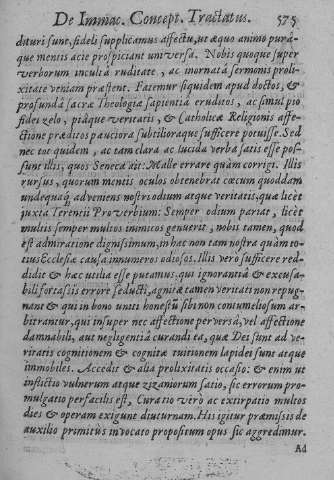 De Immac. Concept. Tractatus. 575
dituri sunt, fideli supplicamus affectu, ut æquo animo purá-
que mentis acie prospiciant universa. Nobis quoque super
verborum incultâ ruditate, ac inornatâ sermonis proli-
xitate veniam præstent. Fatemur siquidem apud doctos, &
profundâ sacræ Theologiæ sapientiâ eruditos, ac simul pio
fidei zelo, piâque veritatis, & Catholicæ Religionis affe-
ctione præditos pauciora subtilioraque sufficere potuisse. Sed
nec tot quidem, ac tam clara ac lucida verba satis esse pos-
sunt illis, quos Seneca ait: Malle errare quàm corrigi. Illis
rursus, quorum mentis oculos obtenebrat cœcum quoddam
undequaq; advemens nostri odium atque veritatis, quæ licèt
juxta Terentii Proverbium: Semper odium pariat, licèt
multis semper multos inimicos genuerit, nobis tamen, quod
est admiratione dignissimum, in hac non tam nostra quàm to-
tius Ecclesiæ causa innumeros odiosos. Illis verò sufficere red-
didit & hac utilia esse putamus, qui ignorantiâ & excusa-
bili fortassis errore seducti, agnitæ tamen veritati non repug-
nant & qui in bono uniti honestū sibi non contumeliosum ar-
bitrantur, qui insuper nec affectione perversâ, vel affectione
damnabili, aut negligentiâ curandi ea, quæ Dei sunt ad ve-
ritatis cognitionem & cognitæ tuitionem lapidei sunt atque
immobiles. Accedit & alia prolixitatis occasio: & enim ut
inflictio vulnerum atque zizaniorum satio, sic errorum pro-
mulgatio perfacilis est, Curatio verò ac extirpatio multos
dies & operam exigunt diuturnam. His igitur præmissis de
auxilio primitùs invocato propositum opus sic aggredimur.
Ad